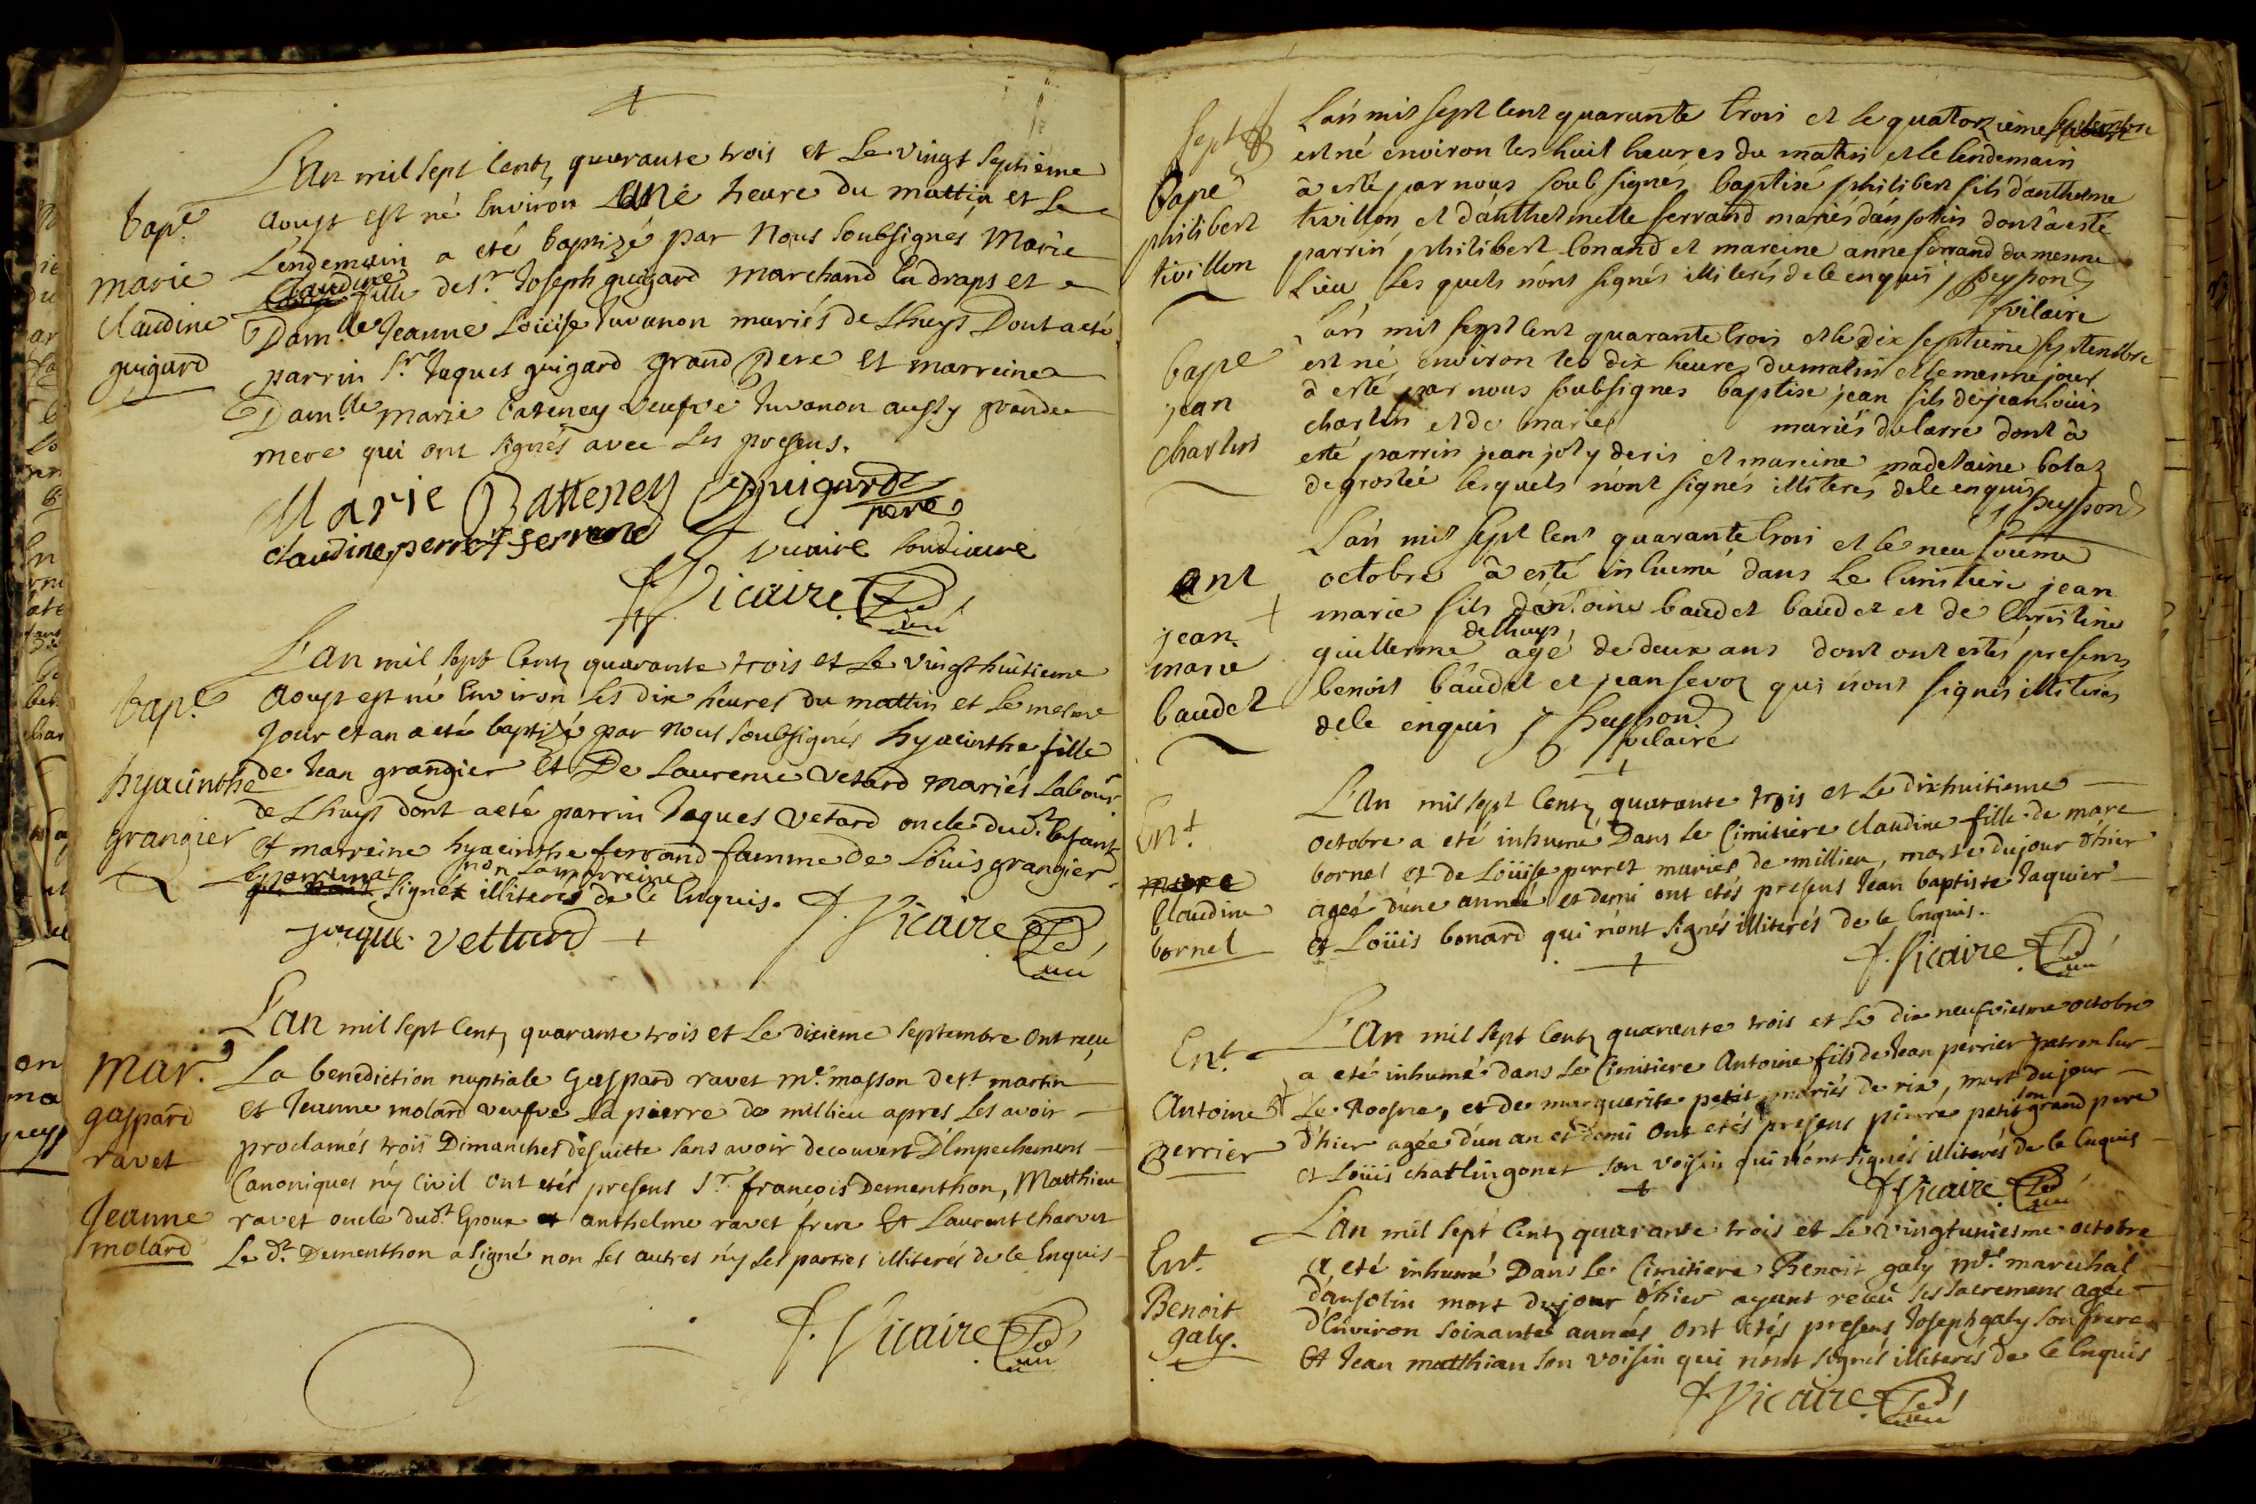 L'an mil sept Centz quarante trois et Le vingt septieme
bap.e
Aoust est né Environ une heure du mattin et Le
Lendemain a eté baptizé par Nous soubsignés Marie
marie
Claudine
fille de s.r Joseph guigard marchand En draps et
claudine
Dam.lle Jeanne Loüise Juvanon mariés de Lhuys Dont a eté
guigard
parrin s.r Jaques guigard grand pere Et marreine
Dam.lle marie bateney veufve Juvanon aussy grande
mere qui ont signés avec Les presens.
Marie Batteney Guigard
pere
claudine perret ferrand
vicaire
f. Vicaire
L'an mil sept Centz quarante trois et Le vingt huitieme
bap.e
Aoust est né Environ Les dix heures du mattin et Le mesme
Jour et an a eté baptizé par Nous soubsignés hyacinthe fille
hyacinthe
de Jean grangier Et De Laurence vetard mariés Labour.
grangier
de Lhuys dont a eté parrin Jaques vetard oncle dud.t Enfant
Et marreine hyacinthe ferrand famme de Loüis grangier
Le parrin a
non La marreine
signé illiterés de Ce Enquis.
jaque vettard
f. Vicaire
L'an mil sept Centz quarante trois et Le dixieme septembre ont reçu
Mar.
La benediction nuptiale gaspard ravet m.e masson de st martin
gaspard
et Jeanne molard veufve La pierre de millieu apres Les avoir
ravet
proclamés trois Dimanches de suitte sans avoir decouvert D'Empechement
Canonique ny Civil ont etés presens s.r françois Dementhon, Matthieu
Jeanne
ravet oncle dud.t Epoux et anthelme ravet frere Et Laurent charvet
molard
Le d.t Dementhon a signé non Les autres ny Les parties illiterés de Ce Enquis
f. Vicaire
L'an mil sept cent quarante trois et le quatorzieme septembre
sept
est né environ les huit heures du matin et le lendemain
bape
à esté par nous soub signés baptisé philibert fils d'anthelme
philibert
tivillon et d'anthelmette ferrand mariés d'ansolin dont à esté
parrin philibert bonand et mareine anne ferrand du mesme
tivillon
lieu les quels n'ont signés illiteres de ce enquis peysson
vicaire
L'an mil sept cent quarante trois et le dix septieme septembre
bape
est né environ les dix heures du matin et le mesme jour
à esté par nous soubsignes baptise jean fils de jean louis
jean
charlin et de marie mariés dularre dont à
charlin
esté parrin jean joly de rix et mareine madelaine bolaz
de groslée lesquels n'ont signés illiterés de ce enquis peysson
L'an mil sept cent quarante trois et le neuvieme
ent
octobre à esté inhumé dans le cimitiere jean
marie fils d'antoine baudet baudet et de christine
jean
de lhuys
marie
guillerme agé de deux ans dont ont estés presents
baudet
benoit baudet et jean sevoz qui n'ont signés illiterés
de ce enquis peysson
vicaire
L'an mil sept Centz quarante trois et Le dixhuitieme
Ent.
octobre a eté inhumé Dans Le Cimitiere claudine fille de marc
marc
bornet et de Loüise perret mariés de millieu, morte du jour d'hier
Claudine
ageé d'une anneé et demi ont etés presens Jean baptiste Jaquier
bornet
et Loüis bonard qui n'ont signés illiterés de Ce Enquis.
f. Vicaire
L'an mil sept Centz quarante trois et Le dix neufviesme octobre
Ent.
a eté inhumé dans Le Cimitiere Antoine fils de Jean perrier patron sur
Antoine
Le Roosne, et de marguerite petit mariés de rix, mort du jour
son
perrier
d'hier agée d'un an et demi ont etés presens pierre petit grand pere
et Loüis chatlingonet son voisin qui n'ont signés illiterés de Ce Enquis
f. Vicaire
L'an mil sept Centz quarante trois et Le vingtuniesme octobre
Ent.
a eté inhumé Dans Le Cimitiere Benoit galy m.e marechal
Benoit
d'ansolin mort du jour d'hier ayant receu ses sacremens agée
galy.
d'Environ soixante années ont etés presens Joseph galy son frere
Et Jean matthian son voisin qui n'ont signés illiterés de Ce Enquis
f. Vicaire